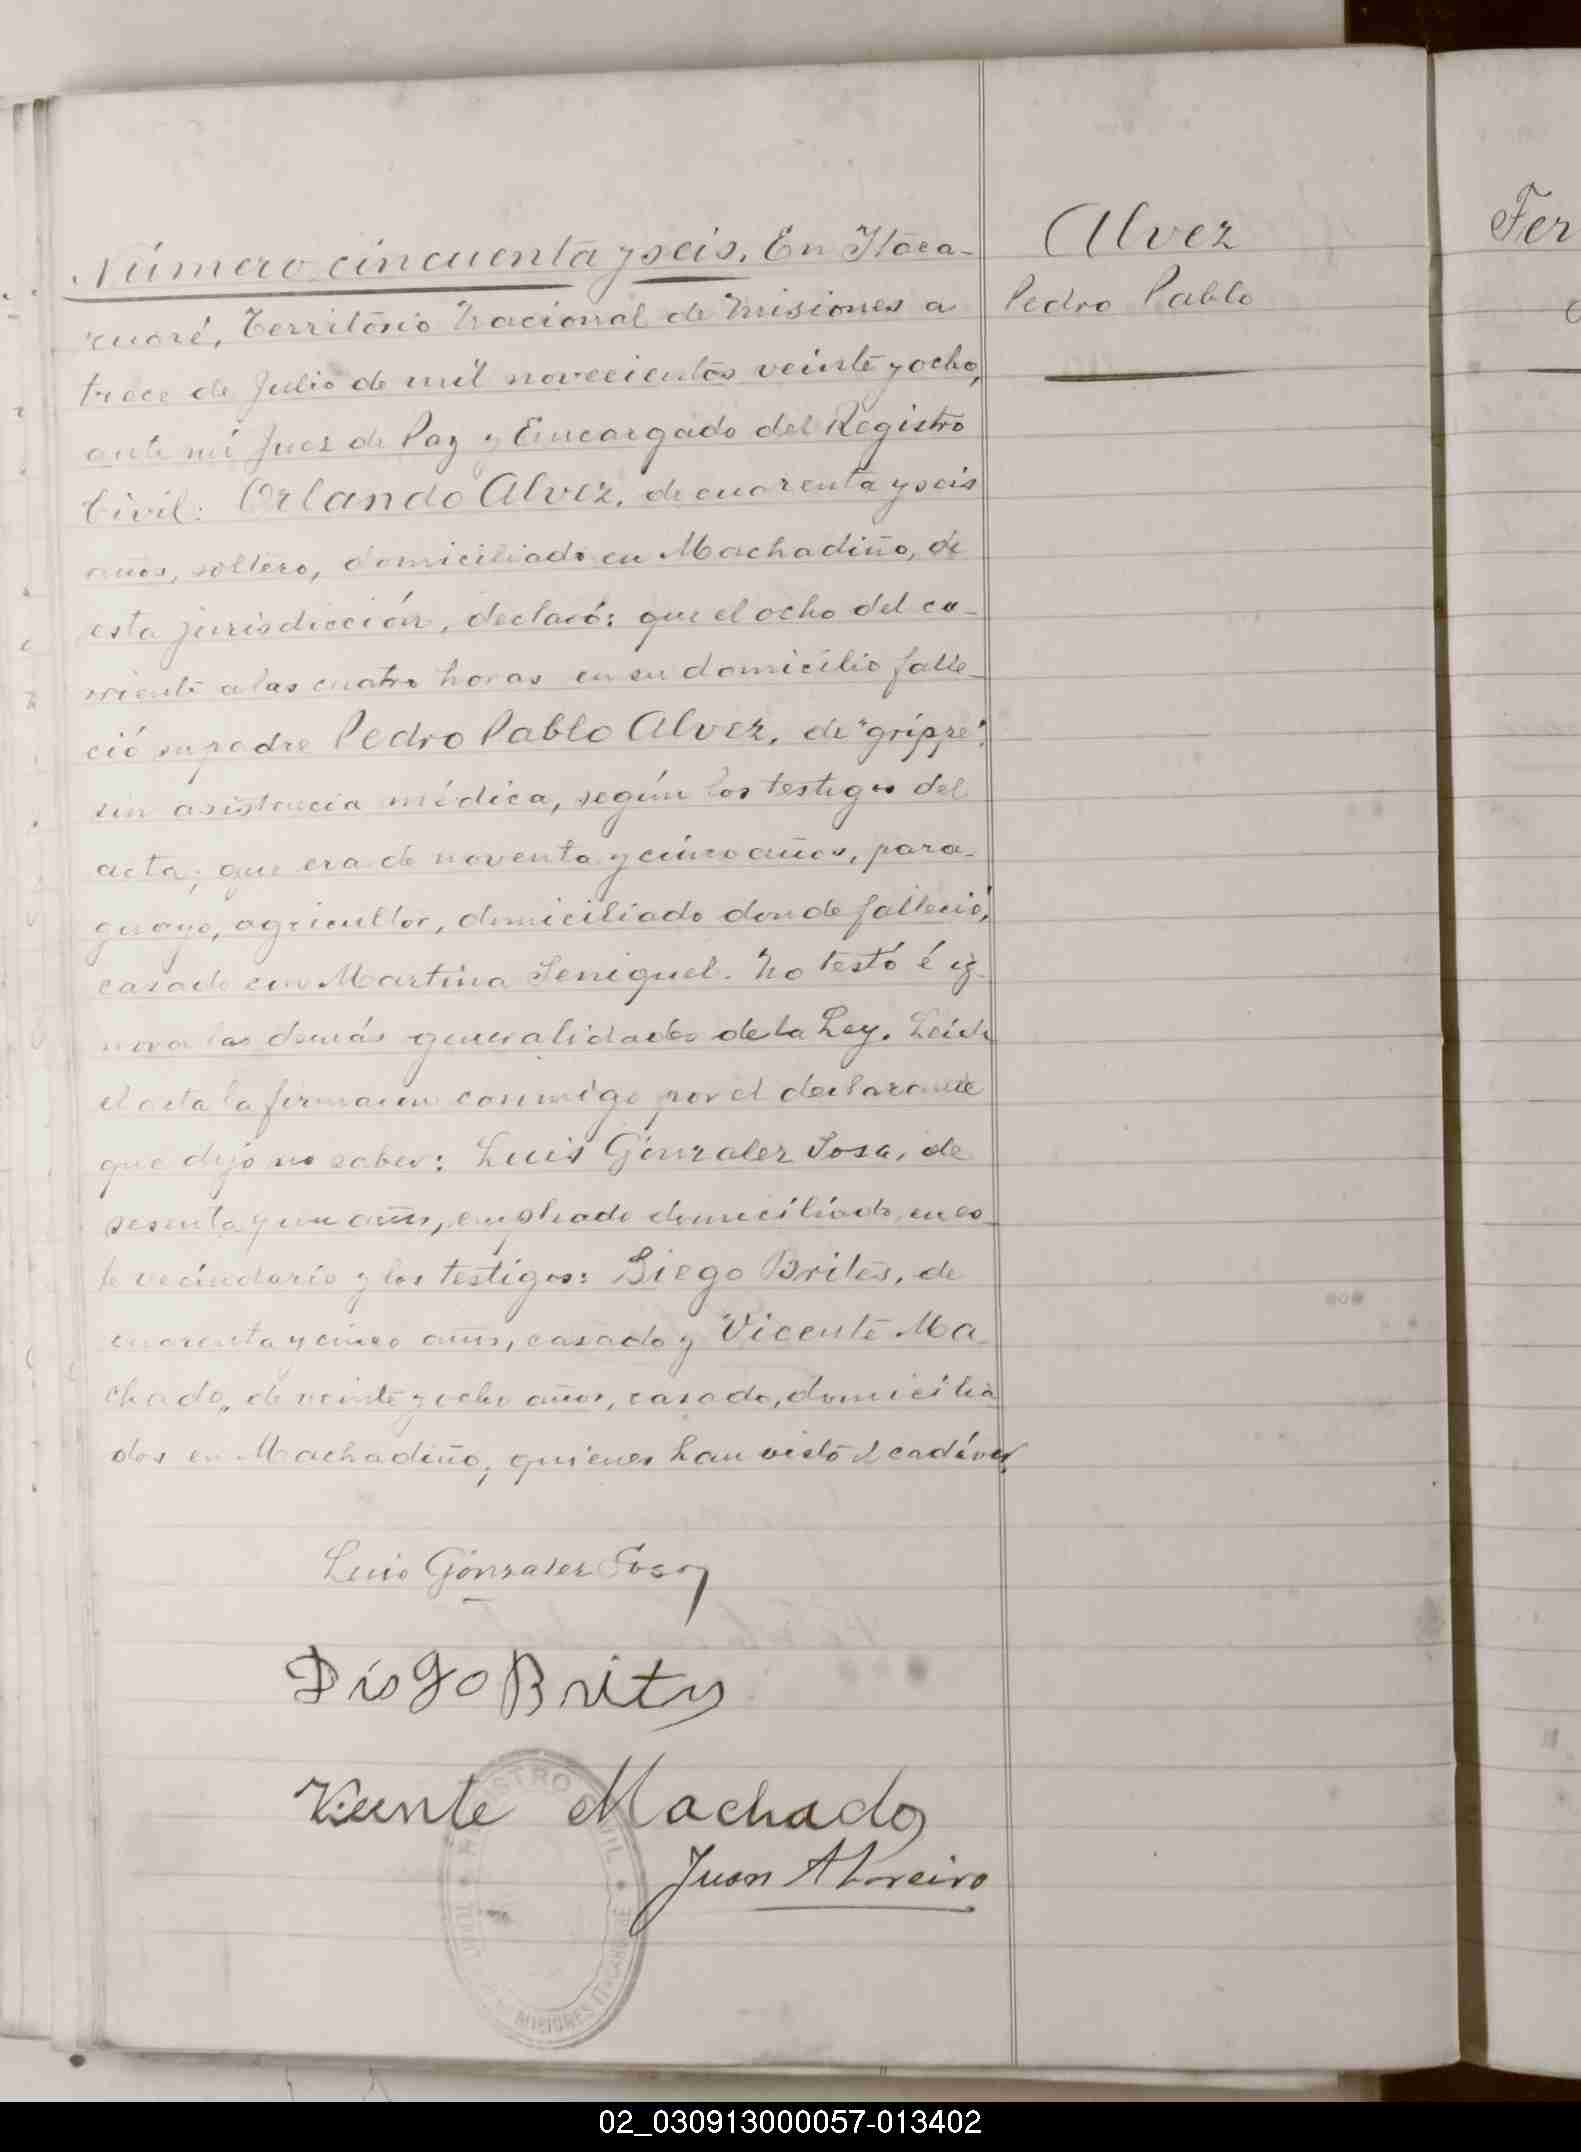 Número cincuenta y seis. En Itaca-
ruaré, Territorio Nacional de Misiones a
trece de Julio de mil novecientos veinte y ocho,
ante mí Juez de Paz y Encargado del Registro
Civil: Orlando Alvez, de cuarenta y seis
años, soltero, domiciliado en Machadiño, de
esta jurisdicción, declaró: que el ocho del co-
rriente a las cuatro horas en su domicilio falle-
ció su padre Pedro Pablo Alvez, de "grippe".
sin asistencia médica, según los testigos del
acta; que era de noventa y cinco años, para-
guayo, agricultor, domiciliado donde falleció,
casado con Martina Seniquel. No testó é ig-
nora las demás generalidades de la Ley. Leida
el acta la firmaron conmigo por el declarante
que dijo no saber: Luis Gonzalez Sosa, de
sesenta y un años, empleado domiciliado en es-
te vecindario y los testigos: Diego Brites, de
cuarenta y cinco años, casado y Vicente Ma-
chado, de veinte y ocho años, casado, domicilia
dos en Machadiño, quienes han visto el cadáver.
Alvez
Pedro Pablo
Fer
Luis Gonzalez Sosa
Diego Brites
Vicente Machado
Juan
REGISTRO CIVIL
MISIONES ITACARUARE
02_030913000057-013402